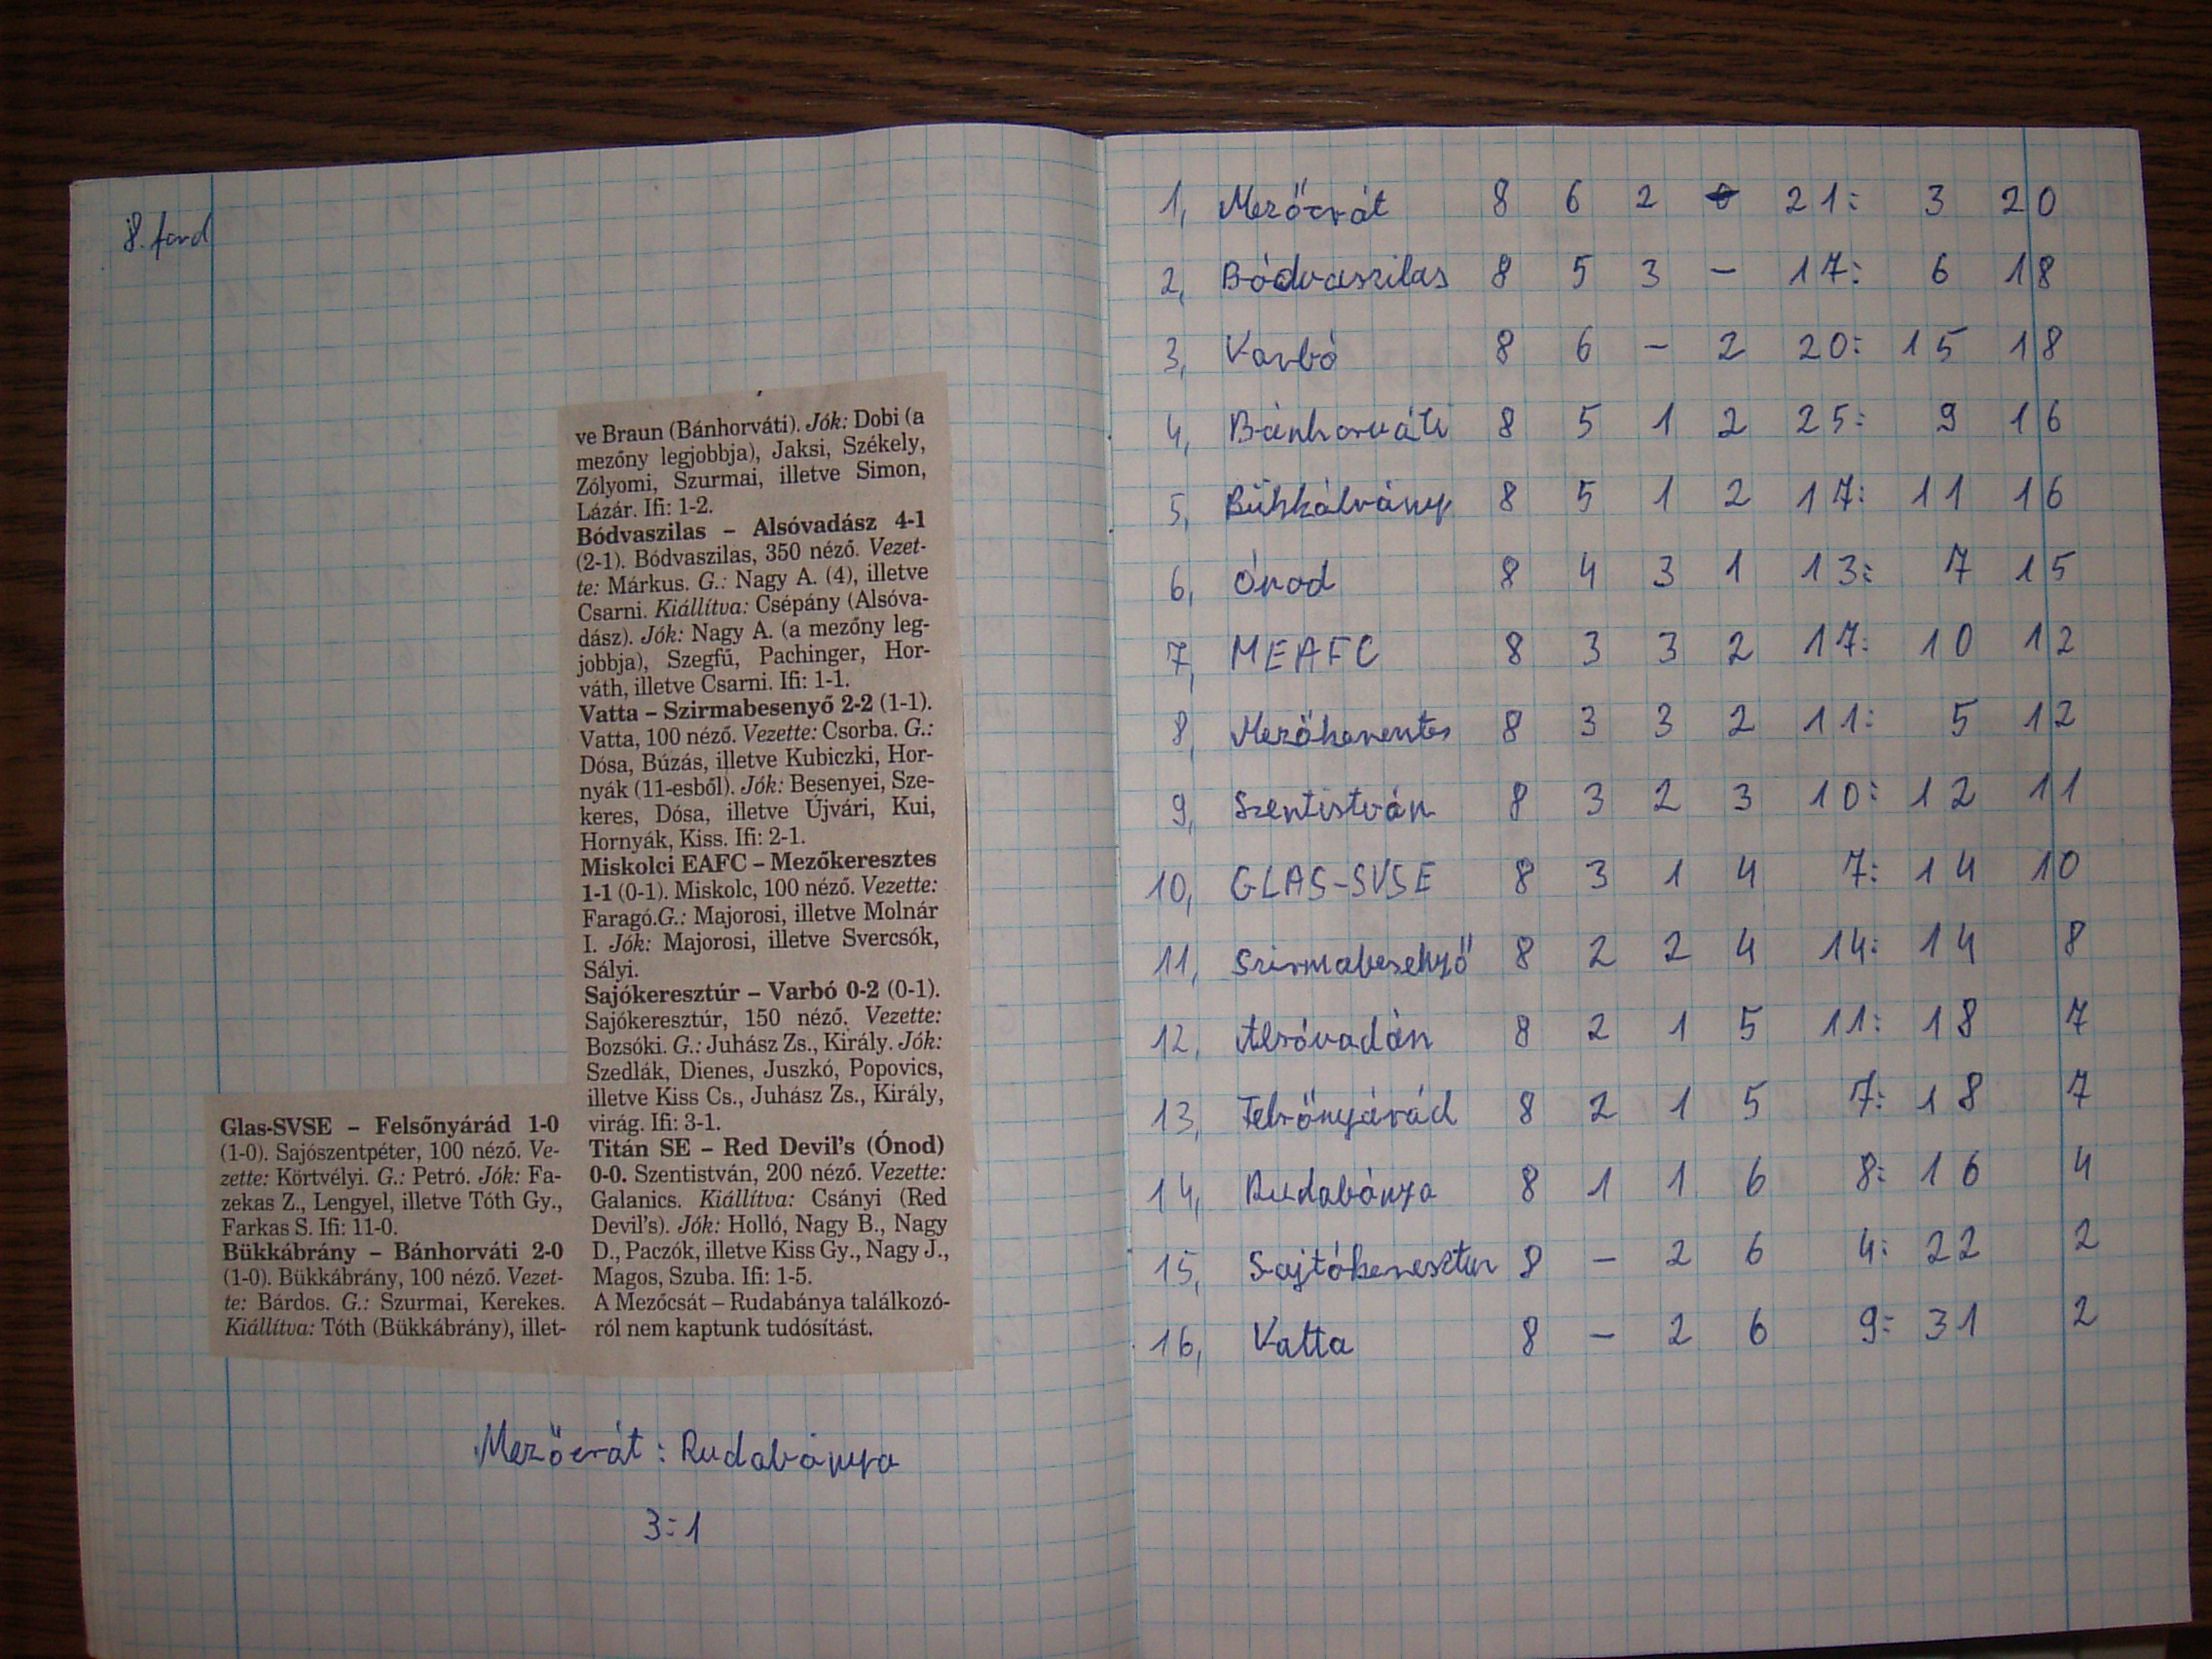 8. ford
Glas-SVSE – Felsőnyárád 1-0
(1-0). Sajószentpéter, 100 néző. Ve-
zette: Körtvélyi. G.: Petró. Jók: Fa-
zekas Z., Lengyel, illetve Tóth Gy.,
Farkas S. Ifi: 11-0.
Bükkábrány – Bánhorváti 2-0
(1-0). Bükkábrány, 100 néző. Vezet-
te: Bárdos. G.: Szurmai, Kerekes.
Kiállítva: Tóth (Bükkábrány), illet-
ve Braun (Bánhorváti). Jók: Dobi (a
mezőny legjobbja), Jaksi, Székely,
Zólyomi, Szurmai, illetve Simon,
Lázár. Ifi: 1-2.
Bódvaszilas – Alsóvadász 4-1
(2-1). Bódvaszilas, 350 néző. Vezet-
te: Márkus. G.: Nagy A. (4), illetve
Csarni. Kiállítva: Csépány (Alsóva-
dász). Jók: Nagy A. (a mezőny leg-
jobbja), Szegfű, Pachinger, Hor-
váth, illetve Csarni. Ifi: 1-1.
Vatta – Szirmabesenyő 2-2 (1-1).
Vatta, 100 néző. Vezette: Csorba. G.:
Dósa, Búzás, illetve Kubiczki, Hor-
nyák (11-esből). Jók: Besenyei, Sze-
keres, Dósa, illetve Újvári, Kui,
Hornyák, Kiss. Ifi: 2-1.
Miskolci EAFC – Mezőkeresztes
1-1 (0-1). Miskolc, 100 néző. Vezette:
Faragó.G.: Majorosi, illetve Molnár
I. Jók: Majorosi, illetve Svercsók,
Sályi.
Sajókeresztúr – Varbó 0-2 (0-1).
Sajókeresztúr, 150 néző. Vezette:
Bozsóki. G.: Juhász Zs., Király. Jók:
Szedlák, Dienes, Juszkó, Popovics,
illetve Kiss Cs., Juhász Zs., Király,
virág. Ifi: 3-1.
Titán SE – Red Devil's (Ónod)
0-0. Szentistván, 200 néző. Vezette:
Galanics. Kiállítva: Csányi (Red
Devil's). Jók: Holló, Nagy B., Nagy
D., Paczók, illetve Kiss Gy., Nagy J.,
Magos, Szuba. Ifi: 1-5.
A Mezőcsát – Rudabánya találkozó-
ról nem kaptunk tudósítást.
Mezőcsát : Rudabánya
3:1
1, Mezőcsát 8 6 2 0 21: 3 20
2, Bódvaszilas 8 5 3 – 17: 6 18
3, Varbó 8 6 – 2 20: 15 18
4, Bánhorváti 8 5 1 2 25: 9 16
5, 8 5 1 2 17: 11 16
6, Ónod 8 4 3 1 13: 7 15
7, MEAFC 8 3 3 2 17: 10 12
8, 8 3 3 2 11: 5 12
9, Szentistván 8 3 2 3 10: 12 11
10, GLAS-SVSE 8 3 1 4 7: 14 10
11, Szirmabesenyő 8 2 2 4 14: 14 8
12, 8 2 1 5 11: 18 7
13, Felsőnyárád 8 2 1 5 7: 18 7
14, Rudabánya 8 1 1 6 8: 16 4
15, Sajtókeresztur 8 – 2 6 4: 22 2
16, Vatta 8 – 2 6 9: 31 2